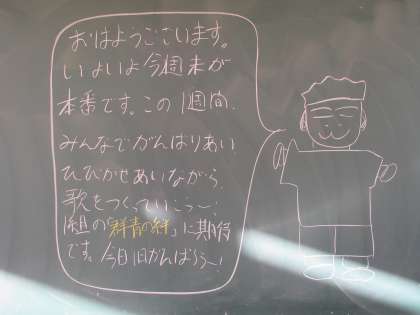 おはようございます。
いよいよ今週末が
本番です。この1週間、
みんなでがんばりあい
ひびかせあいながら、
歌をつくっていこう〜!
1組の「群青の絆」に期待
です。今日1日がんばろう〜!